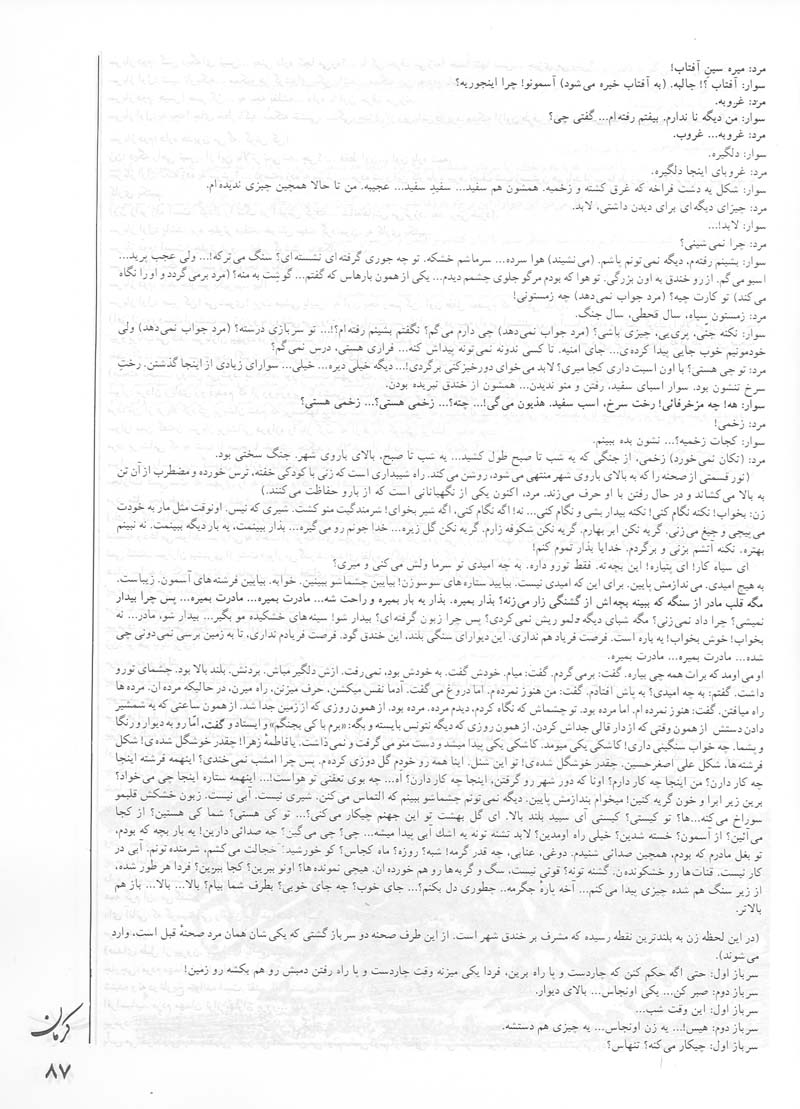 مرد: میره سینِ آفتاب!
سوار: آفتاب ؟! جالبه. (به آفتاب خیره می‌شود) آسمونو! چرا اینجوریه؟
مرد: غروبه.
سوار: من دیگه نا ندارم. بیفتم رفته‌ام... گفتی چی؟
مرد: غروبه... غروب.
سوار: دلگیره.
مرد: غروبای اینجا دلگیره.
سوار: شکل یه دشت فراخه که غرق کشته و زخمیه. همشون هم سفید... سفیدِ سفید... عجیبه. من تا حالا همچین چیزی ندیده‌ام.
مرد: چیزای دیگه‌ای برای دیدن داشتی، لابد.
سوار: لابد!...
مرد: چرا نمی‌شینی؟
سوار: بشینم رفته‌م، دیگه نمی‌تونم پاشم. (می‌نشیند) هوا سرده... سرماشم خشکه. تو چه جوری گرفته‌ای نشسته‌ای؟ سنگ می‌ترکه!... ولی عجب پرید...
اسبو می‌گم. ازرو خندق به اون بزرگی. تو هوا که بودم مرگو جلوی چشمم دیدم... یکی از همون بارهاس که گفتم... گوشِت به منه؟ (مرد برمی‌گردد و او را نگاه
می‌کند) تو کارت چیه؟ (مرد جواب نمی‌دهد) چه زمستونی!
مرد: زمستون سیاه، سال قحطی، سال جنگ.
سوار: نکنه جنّی، پری‌یی، چیزی باشی؟ (مرد جواب نمی‌دهد) چی دارم می‌گم؟ نگفتم بشینم رفته‌ام؟!... تو سربازی درسته؟ (مرد جواب نمی‌دهد) ولی
خودمونیم خوب جایی پیدا کرده‌ی... جای امنیه. تا کسی ندونه نمی‌تونه پیداش کنه... فراری هستی، درس نمی‌گم؟
مرد: تو چی هستی؟ با اون اسبت داری کجا میری؟ لابد می‌خوای دورخیزکنی برگردی!... دیگه خیلی دیره... خیلی... سوارای زیادی از اینجا گذشتن. رختِ
سرخ تنشون بود. سوار اسبای سفید. رفتن و منو ندیدن... همشون از خندق نپریده بودن.
سوار: هه! چه مزخرفاتی! رخت سرخ، اسب سفید. هذیون می‌گی!... چته؟... زخمی هستی؟... زخمی هستی؟
مرد: زخمی!
سوار: کجات زخمیه؟... نشون بده ببینم.
مرد: (تکان نمی‌خورد) زخمی، از جنگی که یه شب تا صبح طول کشید... یه شب تا صبح، بالای باروی شهر. جنگ سختی بود.
(نور قسمتی از صحنه را که به بالای باروی شهر منتهی می‌شود، روشن می‌کند. راه شیبداری است که زنی با کودکی خفته، ترس خورده و مضطرب از آن تن
به بالا می‌کشاند و در حال رفتن با او حرف می‌زند. مرد، اکنون یکی از نگهبانانی است که از بارو حفاظت می‌کنند.)
زن: بخواب! نکنه نگام کنی! نکنه بیدار بشی و نگام کنی... نه! اگه نگام کنی، اگه شیر بخوای! شرمندگیت منو کشت. شیری که نیس. اونوقت مثل مار به خودت
می‌پیچی و جیغ می‌زنی. گریه نکن ابر بهارم. گریه نکن شکوفه زارم. گریه نکن گل زیره... خدا جونم رو می‌گیره... بذار ببینمت، یه بار دیگه ببینمت. نه نبینم
بهتره. نکنه آتشم بزنی و برگردم. خدایا بذار تموم کنم!
ای سیاه کار! ای پتیاره! این بچه‌ته. فقط تورو داره. به چه امیدی تو سرما ولش می‌کنی و میری؟
به هیچ امیدی. می‌ندازمش پایین. برای این که امیدی نیست. بیایید ستاره‌های سوسوزن! بیایین چشماشو ببینین. خوابه. بیایین فرشته‌های آسمون. زیباست.
مگه قلب مادر از سنگه که ببینه بچه‌اش از گشنگی زار می‌زنه؟ بذار بمیره. بذار یه بار بمیره و راحت شه... مادرت بمیره... مادرت بمیره... پس چرا بیدار
نمیشی؟ چرا داد نمی‌زنی؟ مگه شبای دیگه دلمو ریش نمی‌کردی؟ پس چرا زبون گرفته‌ای؟ بیدار شو! سینه‌های خشکیده مو بگیر... بیدار شو، مادر... نه
بخواب! خوش بخواب! یه باره است. فرصت فریاد هم نداری. این دیوارای سنگی بلند، این خندق گود. فرصت فریادم نداری، تا به زمین برسی نمی‌دونی چی
شده... مادرت بمیره... مادرت بمیره.
او می‌اومد که برات همه چی بیاره. گفت: برمی‌گردم. گفت: میام. خودش گفت. به خودش بود، نمی‌رفت. ازش دلگیر مباش. بردنش. بلند بالا بود. چشمای تورو
داشت. گفتم: به چه امیدی؟ به پاش افتادم. گفت: من هنوز نمرده‌م. اما دروغ می‌گفت. آدما نفس میکشن، حرف میزنن، راه میرن، در حالیکه مرده‌ان. مرده ها
راه میافتن. گفت: هنوز نمرده ام. اما مرده بود. تو چشماش که نگاه کردم، دیدم مرده. مرده بود، از همون روزی که از زمین جدا شد. از همون ساعتی که یه شمشیر
دادن دستش از همون وقتی که از دار قالی جداش کردن. از همون روزی که دیگه نتونس بایسته و بگه: «برم با کی بجنگم» و ایستاد و گفت، امّا رو به دیوار و رنگا
و پشما. چه خواب سنگینی داری! کاشکی یکی میومد. کاشکی یکی پیدا میشد و دست منو می‌گرفت و نمی‌ذاشت. یا فاطمهٔ زهرا! چقدر خوشگل شده‌ی! شکل
فرشته‌ها، شکل علی اصغرحسین. چقدر خوشگل شده‌ی! تو این شنل. اینا همه رو خودم گل دوزی کرده‌م. پس چرا امشب نمی‌خندی؟ اینهمه فرشته اینجا
چه کار دارن؟ من اینجا چه کار دارم؟ اونا که دور شهر رو گرفتن، اینجا چه کار دارن؟ آه... چه بوی تعفنی تو هواست!... اینهمه ستاره اینجا چی می‌خواد؟
برین زیر ابرا و خون گریه کنین! میخوام بندازمش پایین. دیگه نمی‌تونم چشماشو ببینم که التماس می‌کنن. شیری نیست. آبی نیست. زبون خشکش قلبمو
سوراخ می‌کنه...ها؟ تو کیستی؟ کیستی آی سپید بلند بالا. ای گل بهشت تو این جهنم چیکار می‌کنی؟... تو کی هستی؟ شما کی هستین؟ از کجا
می‌آئین؟ از آسمون؟ خسته شدین؟ خیلی راه اومدین؟ لابد تشنه تونه یه اشك آبی پیدا میشه... چی؟ چی می‌گین؟ چه صدائی دارین! یه بار بچه که بودم،
تو بغل مادرم که بودم، همچین صدائی شنیدم. دوغی، عنابی، چه قدر گرمه! شبه؟ روزه؟ ماه کجاس؟ کو خورشید؟ خجالت می‌کشم، شرمنده تونم. آبی در
کار نیست. قنات‌ها رو خشکونده‌ن. گشنه تونه؟ قوتی نیست، سگ و گربه‌ها رو هم خورده ان. هیچی نمونده‌ها؟ اونو ببرین؟ کجا ببرین؟ فردا هر طور شده،
از زیر سنگ هم شده چیزی پیدا می‌کنم... آخه پارهٔ جگرمه.. چطوری دل بکنم؟... جای خوب؟ چه جای خوبی؟ بطرف شما بیام؟ بالا... بالا... باز هم
بالاتر.
(در این لحظه زن به بلندترین نقطه رسیده که مشرف بر خندق شهر است. از این طرف صحنه دو سرباز گشتی که یکی‌شان همان مرد صحنهٔ قبل است، وارد
می‌شوند).
سرباز اول: حتی اگه حکم کنن که چاردست و پا راه برین، فردا یکی میزنه وقت چاردست و پا راه رفتن دمبش رو هم بکشه رو زمین!
سرباز دوم: صبر کن... یکی اونجاس... بالای دیوار.
سرباز اول: این وقت شب...
سرباز دوم: هیس!... یه زن اونجاس... یه چیزی هم دستشه.
سرباز اول: چیکار می‌کنه؟ تنهاس؟
کرمان
۸۷